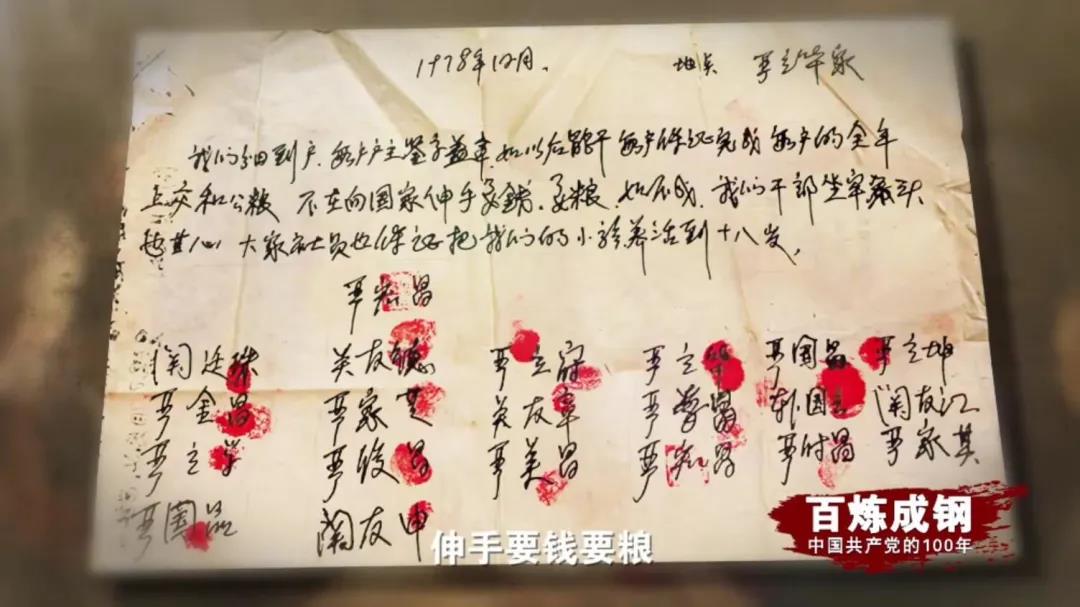 1978年12月. 地点 严立华家
我们分田到户,每户户主签字盖章,如以后能干,每户保证完成每户的全年
上交和公粮 不在向国家伸手要钱,要粮,如不成,我们干部坐牢杀头
也甘心,大家社员也保证把我们的小孩养活到十八岁,
严宏昌
关廷珠 关友德 严立符 严立华 严国昌 严立坤
严金昌 严家芝 关友章 严学昌 韩国云 关友江
严立学 严俊昌 严美昌 严宏昌 严付昌 严家其
严国品 关友申
伸手要钱要粮
百炼成钢
中国共产党的100年